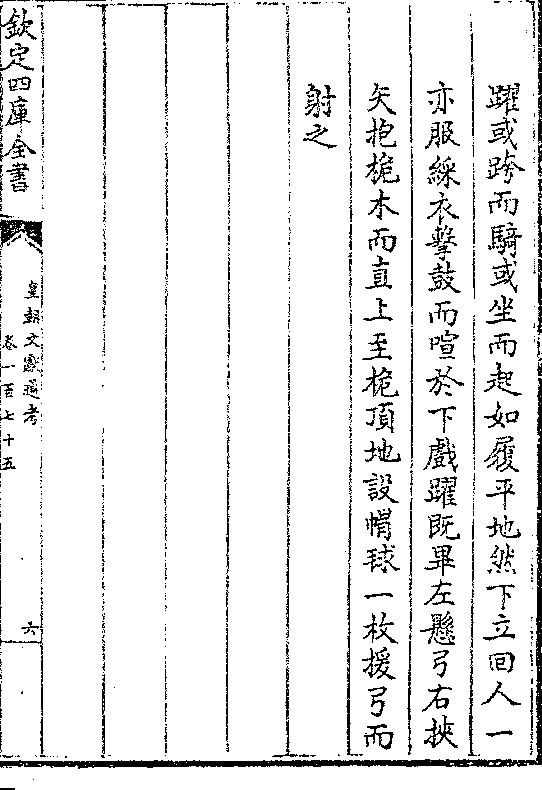 躍或跨而騎或坐而起如履平地然下立回人一
亦服綵衣擊鼓而喧於下戲躍既畢左懸弓右挾
矢抱桅木而直上至桅頂地設帽球一枚援弓而
射之
欽定四庫全書
皇朝文獻通考
卷一百七十五
六